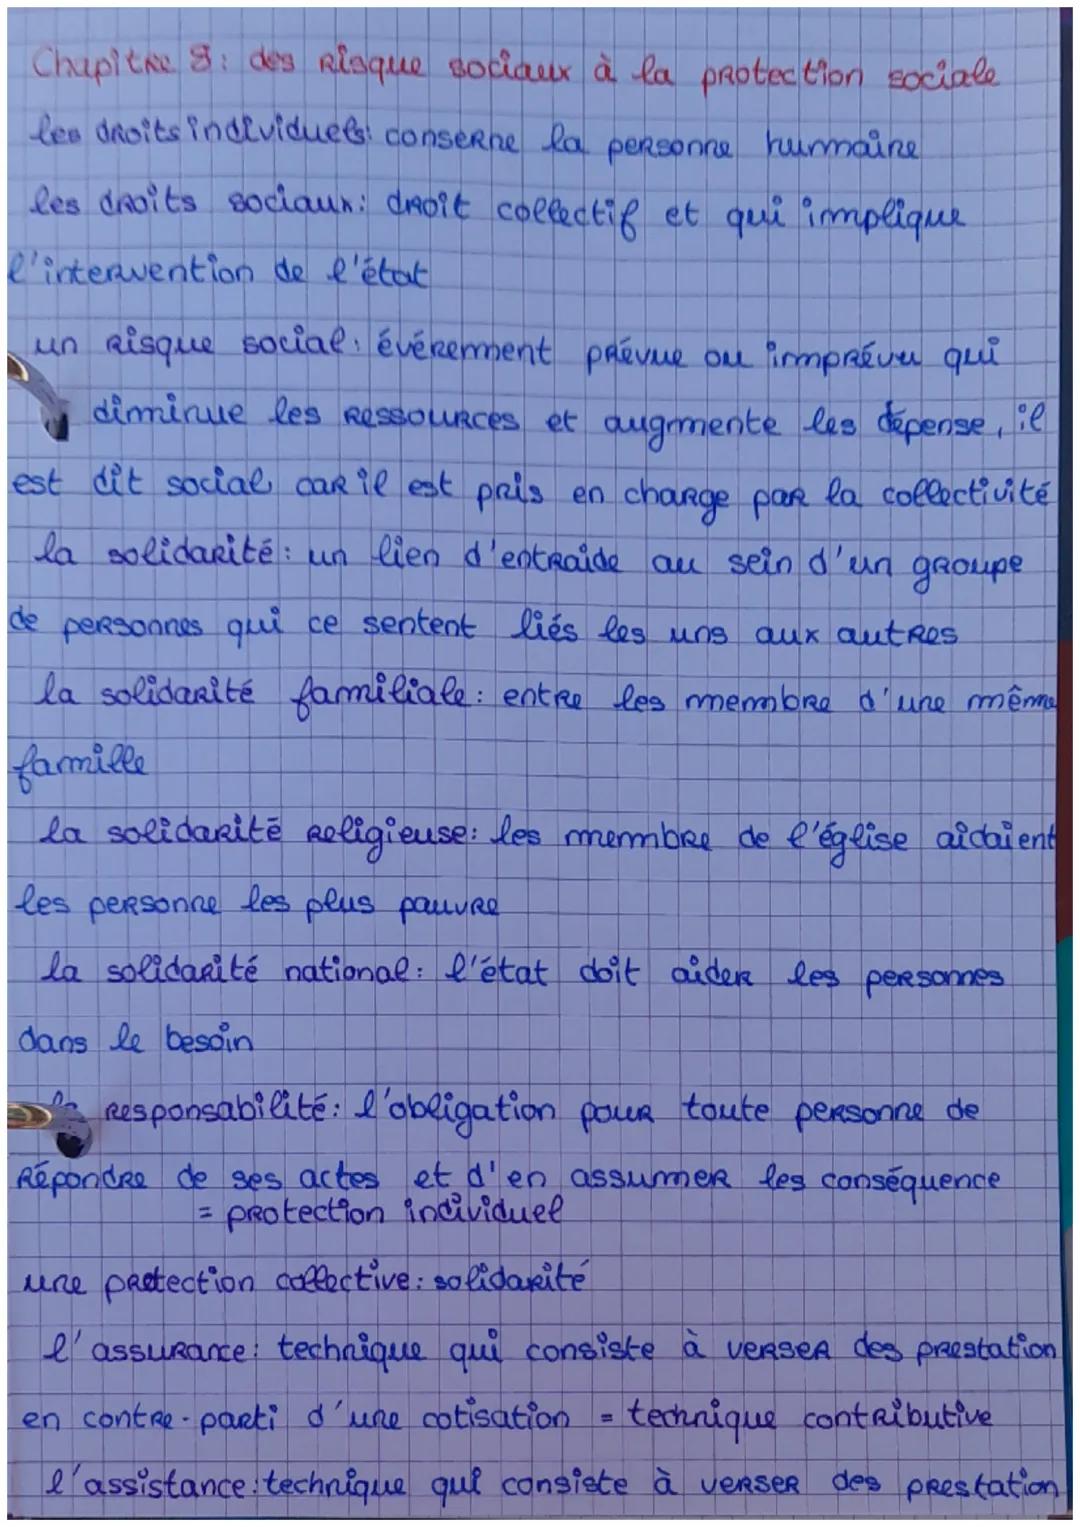 Chapitre 8: des Risque sociaux à la protection sociale
les droits individuels: conserne la personne humaine
les droits sociaux: droit collectif et qui implique
l'intervention de l'état
un Risque social: événement prévue ou imprévu qui
diminue les Ressources et augmente les dépense, il
est dit social car il est pris en charge par la collectivité
la solidarité: un lien d'entraide au sein d'un groupe
de personnes qui ce sentent liés les uns aux autres
la solidarité familiale: entre les membre d'une même
famille
la solidarité Religieuse: les membre de l'église aidaient
les personne les plus pauvre
la solidarité national: l'état doit aider les personnes
dans le besoin
la Responsabilité: l'obligation pour toute personne de
Répondre de ses actes et d'en assumer les conséquence
= protection individuel
une protection collective: solidarité
l'assurance: technique qui consiste à verser des prestation
en contre-parti d'une cotisation = technique contributive
l'assistance: technique qui consiste à verser des prestation